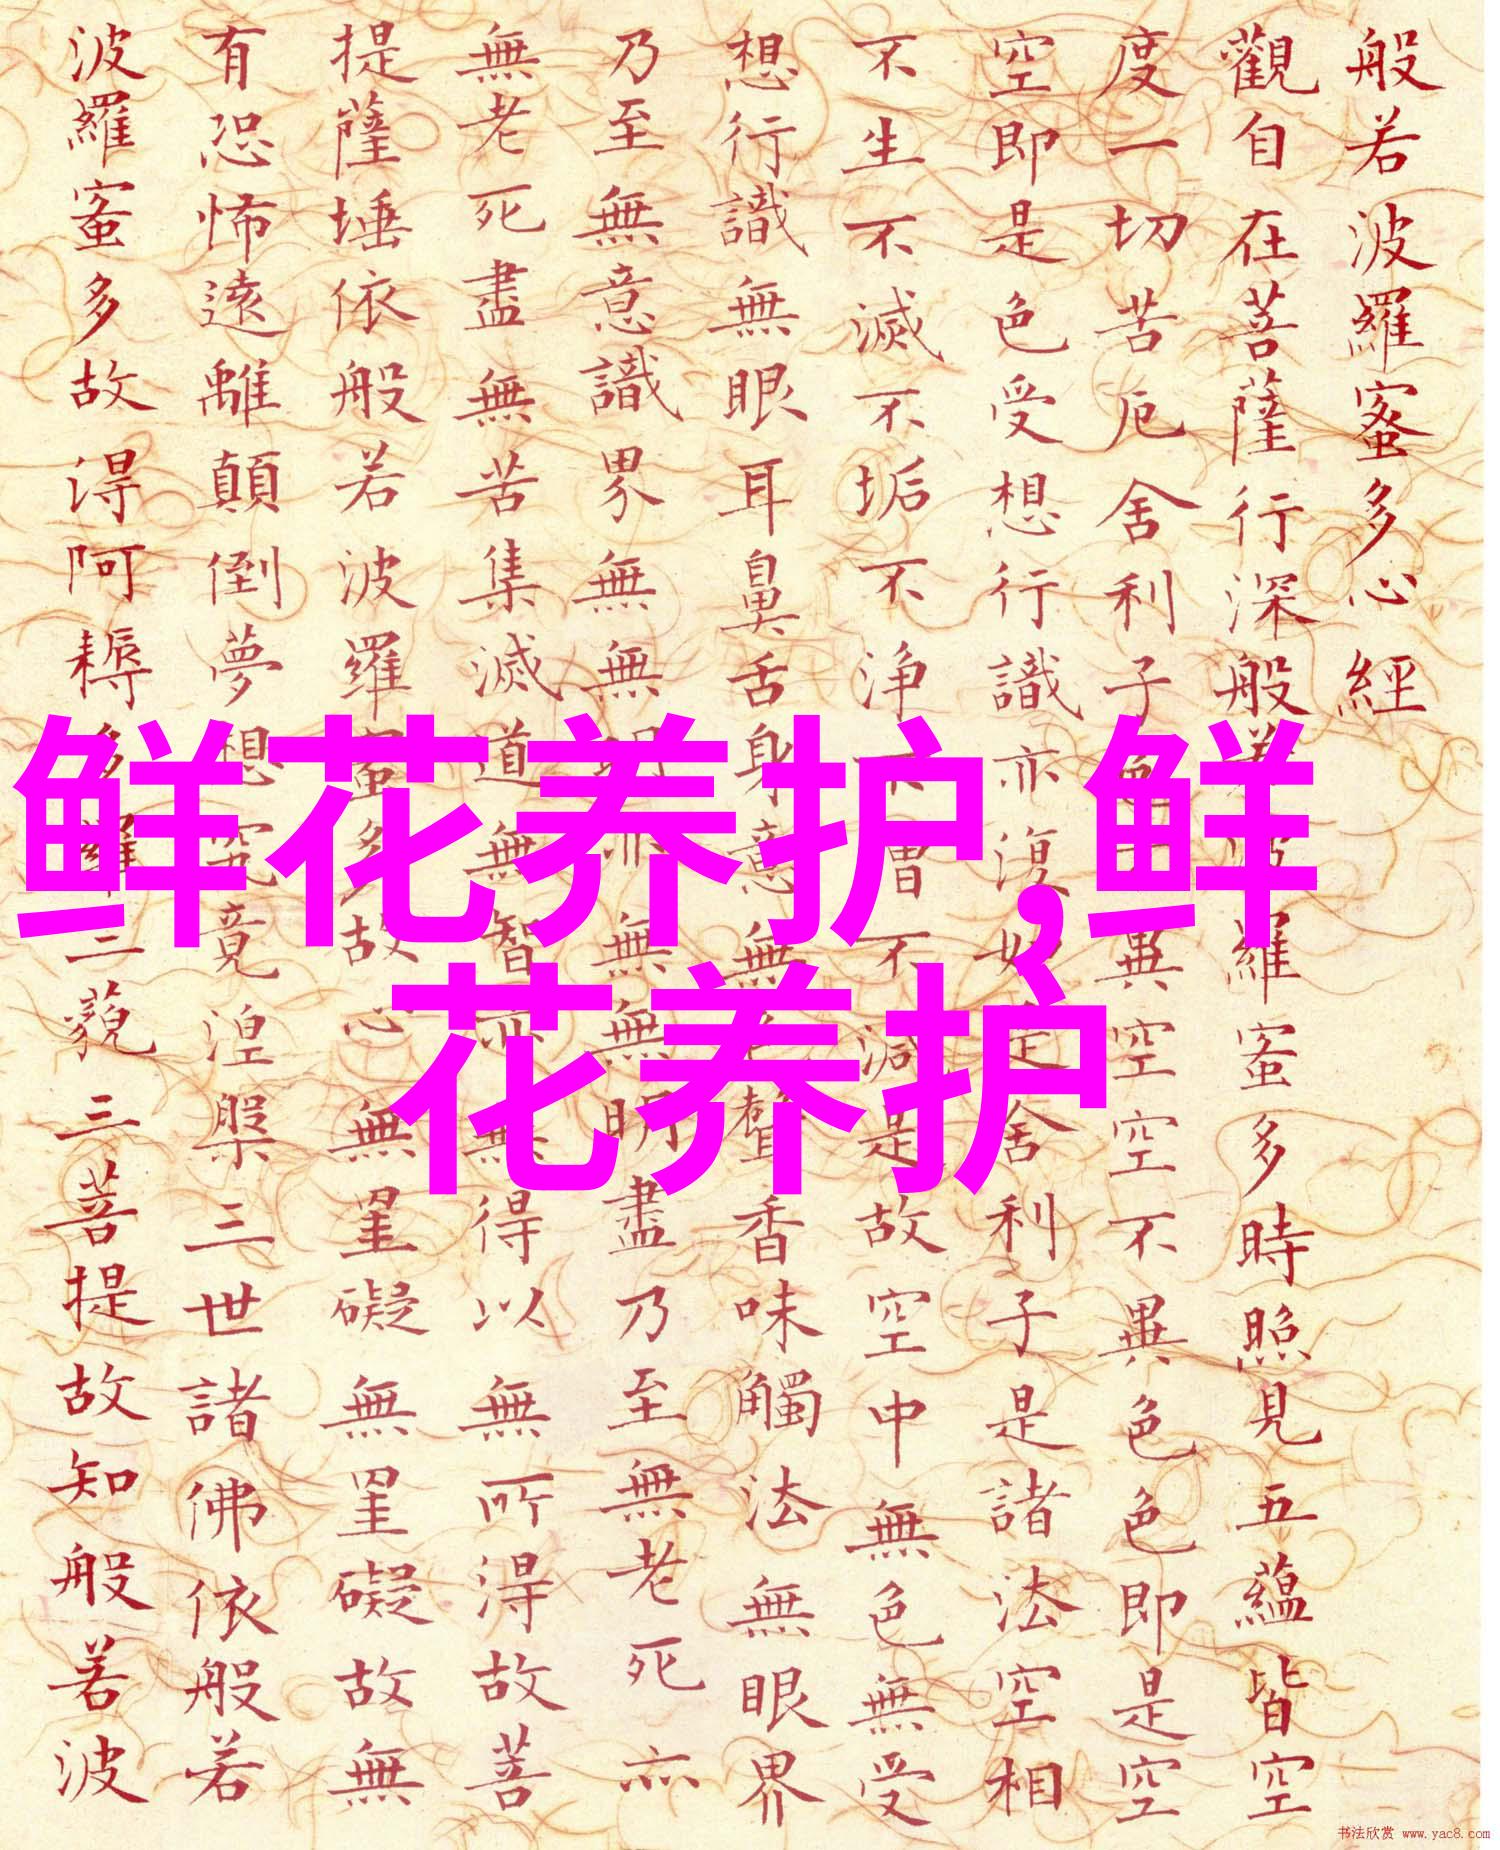 般若波羅蜜多心經
觀自在菩薩行深般若波羅蜜多時照見五蘊皆空
度一切苦厄舍利子色不異空空不異色色即是空
空即是色受想行識亦復如是舍利子是諸法空相
不生不滅不垢不净不增不減是故空中無色無受
想行識無眼耳鼻舌身意無色聲香味觸法無眼界
乃至無意識界無無明亦無無明盡乃至無老死亦
無老死盡無苦集滅道無智亦無得以無所得故菩
提薩埵依般若波羅蜜多故心無罣礙無罣礙故無
有恐怖遠離顛倒夢想究竟涅槃三世諸佛依般若
波羅蜜多故得阿耨多羅三藐三菩提故知般若波
鲜花养护,鲜
花养护
书法欣赏 www.yac8.com